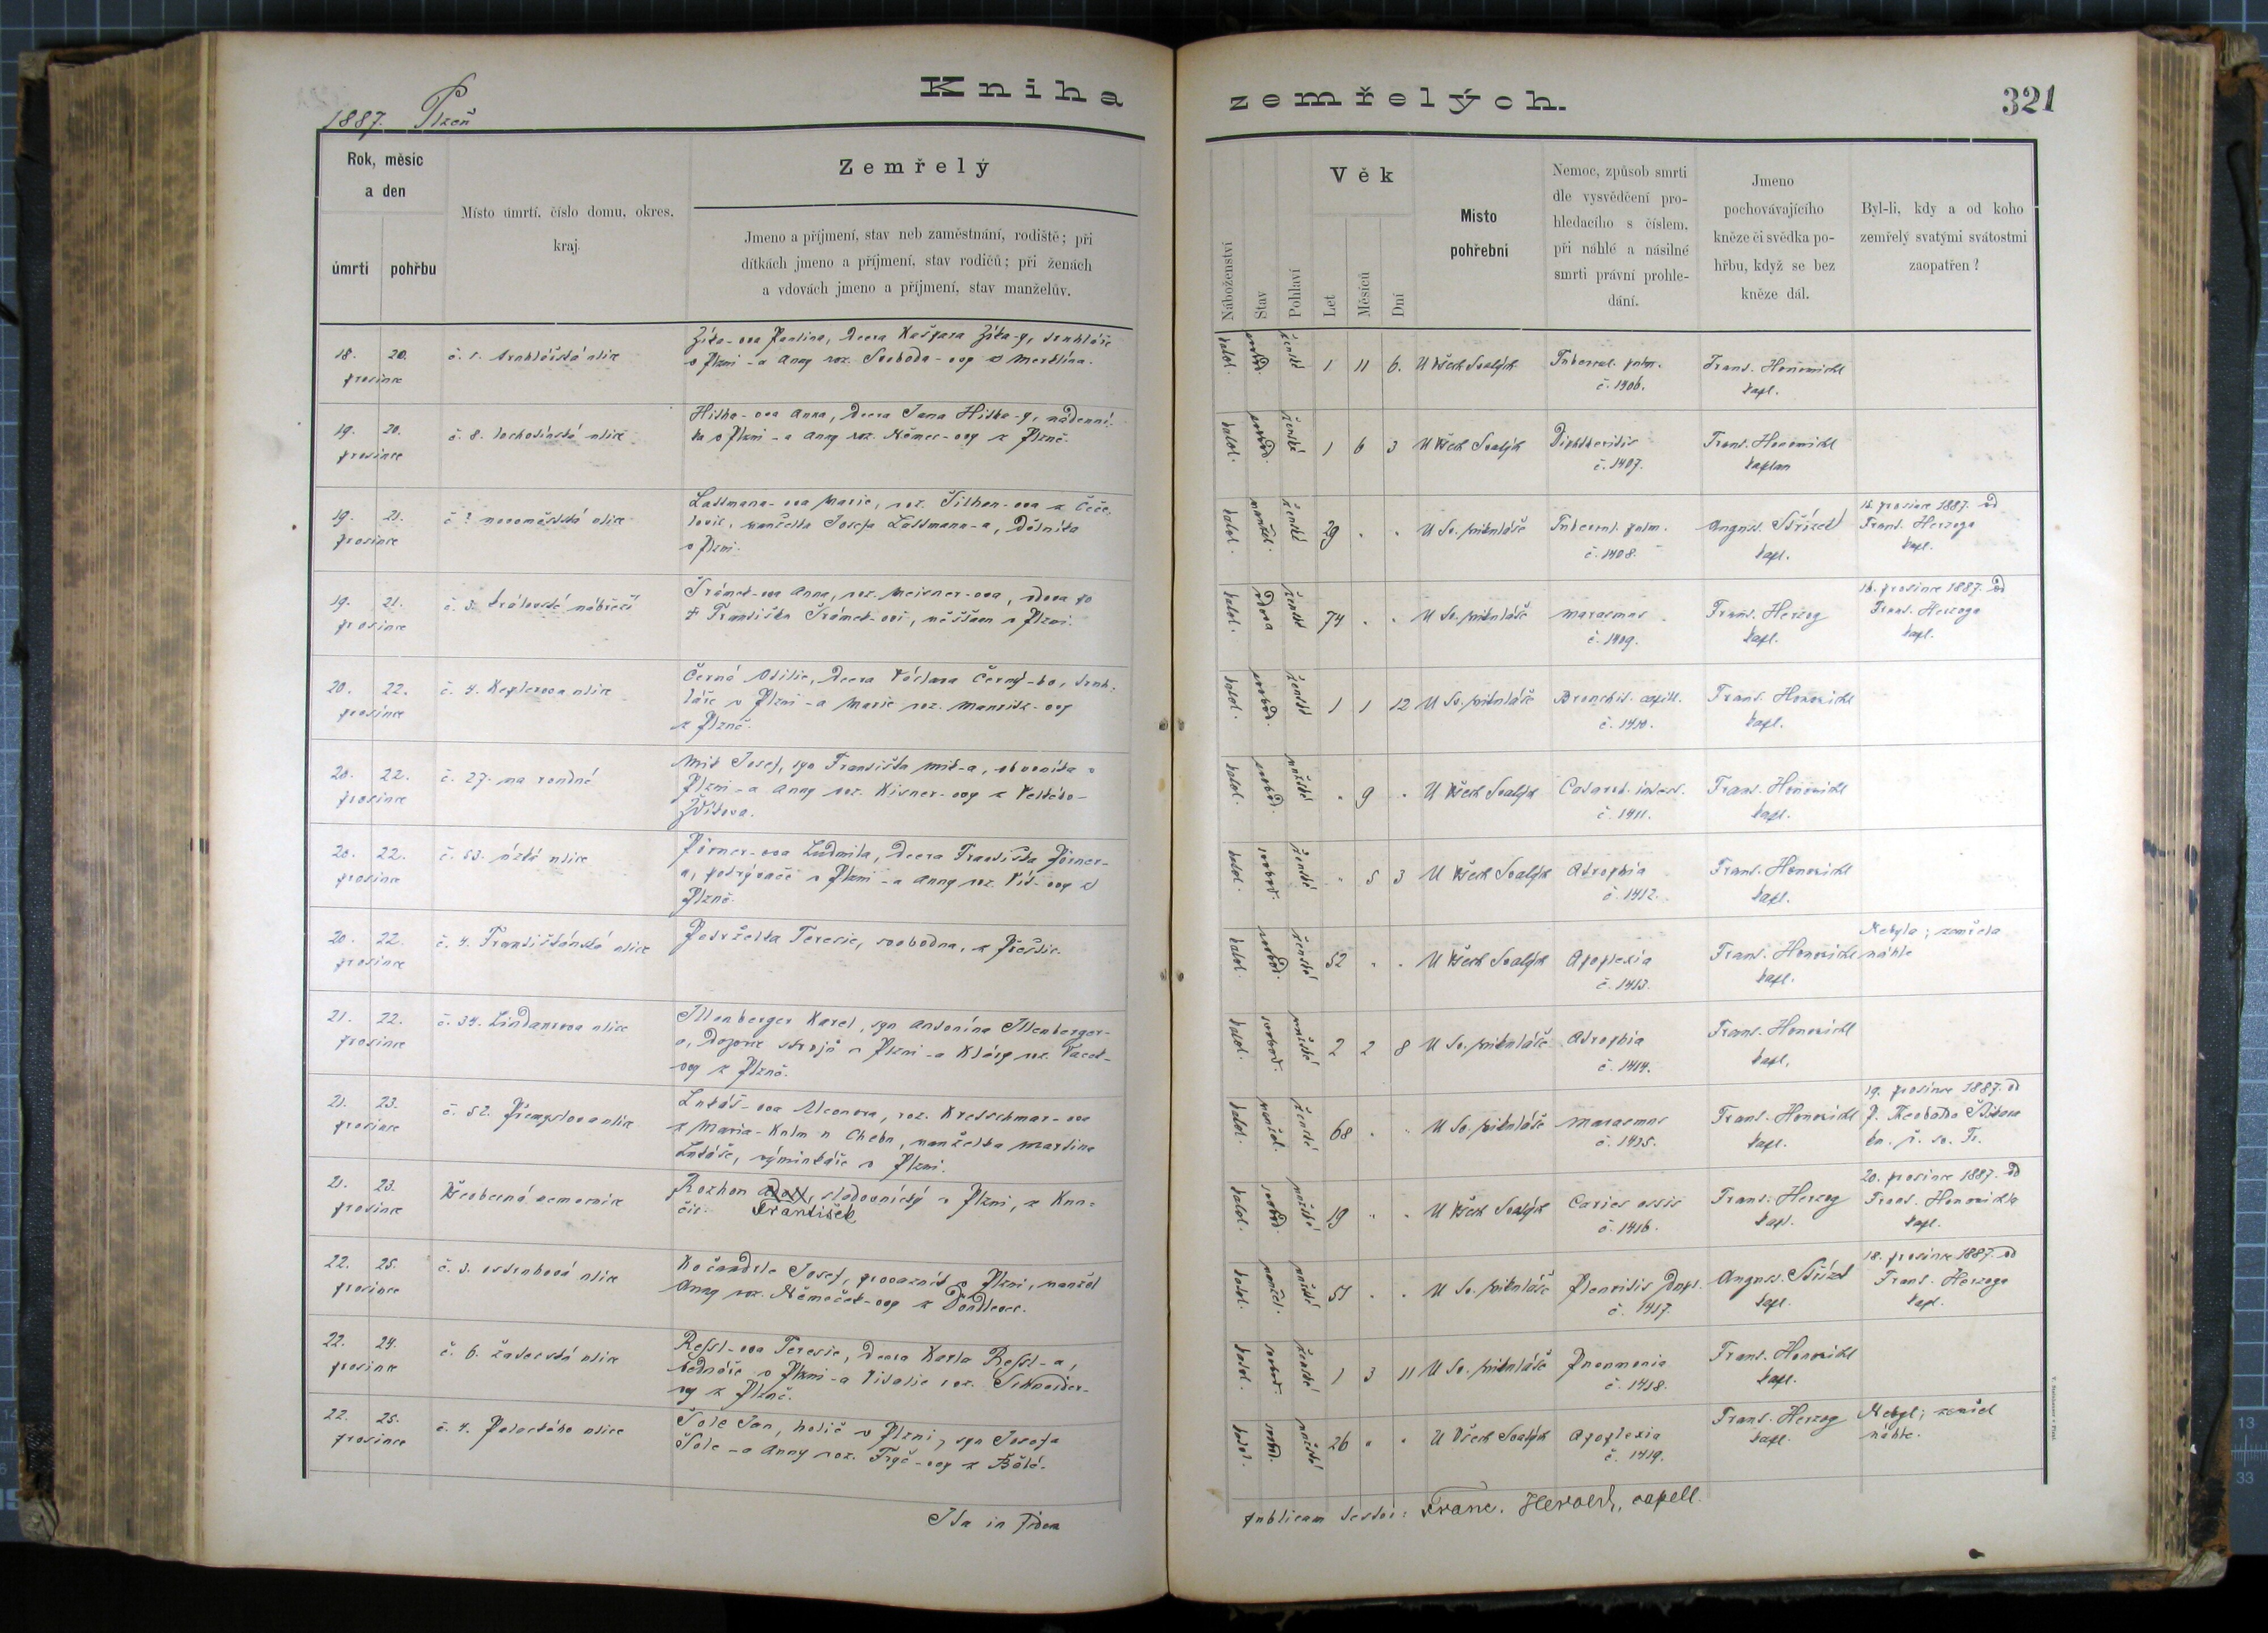 1887. Plzeň
Kniha zemřelých.
321
Rok, měsíc
a den
úmrtí
pohřbu
Místo úmrtí, číslo domu, okres,
kraj.
Zemřelý
Jmeno a příjmení, stav neb zaměstnání, rodiště; při
dítkách jmeno a příjmení, stav rodičů; při ženách
a vdovách jmeno a příjmení, stav manželův.
Náboženství
Stav
Pohlaví
Věk
Let
Měsíců
Dní
Místo
pohřební
Nemoc, způsob smrti
dle vysvědčení pro-
hledacího s číslem,
při náhlé a násilné
smrti právní prohle-
dání.
Jmeno
pochovávajícího
kněze či svědka po-
hřbu, když se bez
kněze dál.
Byl-li, kdy a od koho
zemřelý svatými svátostmi
zaopatřen?
18. 20.
prosince
č. 1. truhlářská ulice
Zíka-ova Paulina, dcera Kašpara Zíka-y, truhláře
v Plzni - a Anny roz. Svoboda-ovy z Merklína.
katol. svobod. ženské 1 11 6. U Všech Svatých
Tubercul. pulm.
č. 1406.
Frant. Honomichl
kapl.
19. 20.
prosince
č. 8. lochotínská ulice
Hitka-ova Anna, dcera Jana Hitka-y, nádenní-
ka v Plzni - a Anny roz. Němec-ovy z Plzně.
katol. svobod. ženské 1 6 3 U Všech Svatých
Diphtheritis
č. 1407.
Frant. Honomichl
kaplan
19. 21.
prosince
č ? novoměstská ulice
Lattmana-ova Marie, roz.
manželka Josefa Lattmana-a, dělníka
v Plzni.
katol. manžel. ženské 29 . . U Sv. Mikuláše
Tubercul. pulm.
č. 1408.
August. Střízek
kapl.
15. prosince 1887. od
Frant. Herzoga
kapl.
19. 21.
prosince
č. 3. královské nábřeží
Šrámek-ova Anna, roz. Meisner-ova, vdova po
† Františku Šrámek-ovi, měšťanu v Plzni.
katol. vdova ženské 74 . . U Sv. Mikuláše
Marasmus
č. 1409.
Frant. Herzog
kapl.
16. prosince 1887. od
Frant. Herzoga
kapl.
20. 22.
prosince
č. 4. Keplerova ulice
Černá Otilie, dcera Václava Černý-ho, truh-
láře v Plzni - a Marie roz.
z Plzně.
katol. svobod. ženské 1 1 12 U Sv. Mikuláše
Bronchit. capill.
č. 1410.
Frant. Honomichl
kapl.
20. 22.
prosince
č. 27. na rondné
Mik Josef, syn Františka Mik-a, obuvníka v
Plzni - a Anny roz. Kisner-ovy z Velkého-
Zdikova.
katol. svobod. mužské . 9 . U Všech Svatých
Catarrh. intest.
č. 1411.
Frant. Honomichl
kapl.
20. 22.
prosince
č. 53. úzká ulice
Pörner-ova Ludmila, dcera Františka Pörner-
a, pokrývače v Plzni - a Anny roz. Vít-ovy z
Plzně.
katol. svobod. ženské . 5 3 U Všech Svatých
Atrophia
č. 1412.
Frant. Honomichl
kapl.
20. 22.
prosince
č. 4. Františkánská ulice
Petrželka Teresie, svobodna, z Přeštic.
katol. svobod. ženské 52 . . U Všech Svatých
Apoplexia
č. 1413.
Frant. Honomichl
kapl.
Nebyla; zemřela
náhle
21. 22.
prosince
č. 34. Lindaurova ulice
Illenberger Karel, syn Antonína Illenberger-
a, dozorce strojů v Plzni - a Kláry roz.
ovy z Plzně.
katol. svobod. mužské 2 2 8 U Sv. Mikuláše
Atrophia
č. 1414.
Frant. Honomichl
kapl.
21. 23.
prosince
č. 52. Přemyslova ulice
Lukáš-ova Eleonora, roz. Kretschmar-ova
z Maria-Kulm u Chebu, manželka Martina
Lukáše, výminkáře v Plzni.
katol. manžel. ženské 68 . . U Sv. Mikuláše
Marasmus
č. 1415.
Frant. Honomichl
kapl.
19. prosince 1887. od
P. Theobalda
kn. ř. sv. Fr.
21. 23.
prosince
Všeobecná nemocnice
Rozhon, sladovnický v Plzni, z Kun-
čic. František
katol. svobod. mužské 19 . . U Všech Svatých
Caries ossis
č. 1416.
Frant. Herzog
kapl.
20. prosince 1887. od
Frant. Honomichla
kapl.
22. 25.
prosince
č. 3. ostruhová ulice
Kočandrle Josef, provazník v Plzni, manžel
Anny roz. Němeček-ovy z Doudlevec.
katol. manžel. mužské 51 . . U Sv. Mikuláše
Pleuritis dupl.
č. 1417.
August. Střízek
kapl.
18. prosince 1887. od
Frant. Herzoga
kapl.
22. 24.
prosince
č. 6. žatecká ulice
Ressl-ova Teresie, dcera Karla Ressl-a,
bednáře v Plzni - a Vitalie roz. Schneider-
ovy z Plzně.
katol. svobod. ženské 1 3 11 U Sv. Mikuláše
Pneumonia
č. 1418.
Frant. Honomichl
kapl.
22. 25.
prosince
č. 4. Palackého ulice
Šole Jan, holič v Plzni, syn Josefa
Šole - a Anny roz. Fryč-ovy z Bělé.
katol. svobod. mužské 26 . . U Všech Svatých
Apoplexia
č. 1419.
Frant. Herzog
kapl.
Nebyl; zemřel
náhle.
Ita in fidem publicam testor: Franc. Herold, capell.